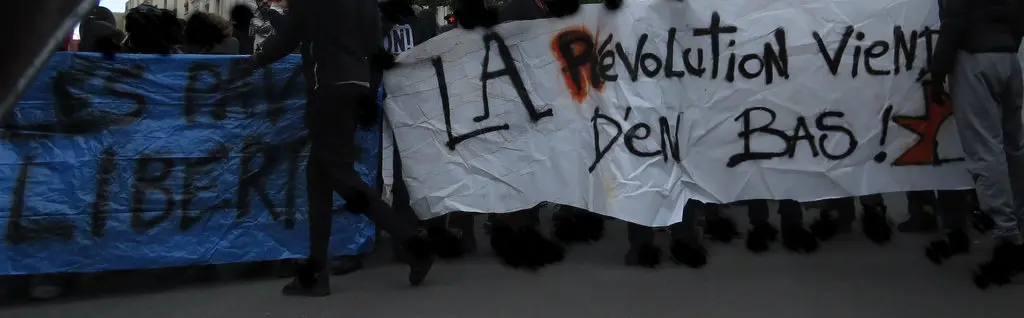 LES
LIBERT
N!
LA RÉVOLUTION VIENT
D'EN BAS!